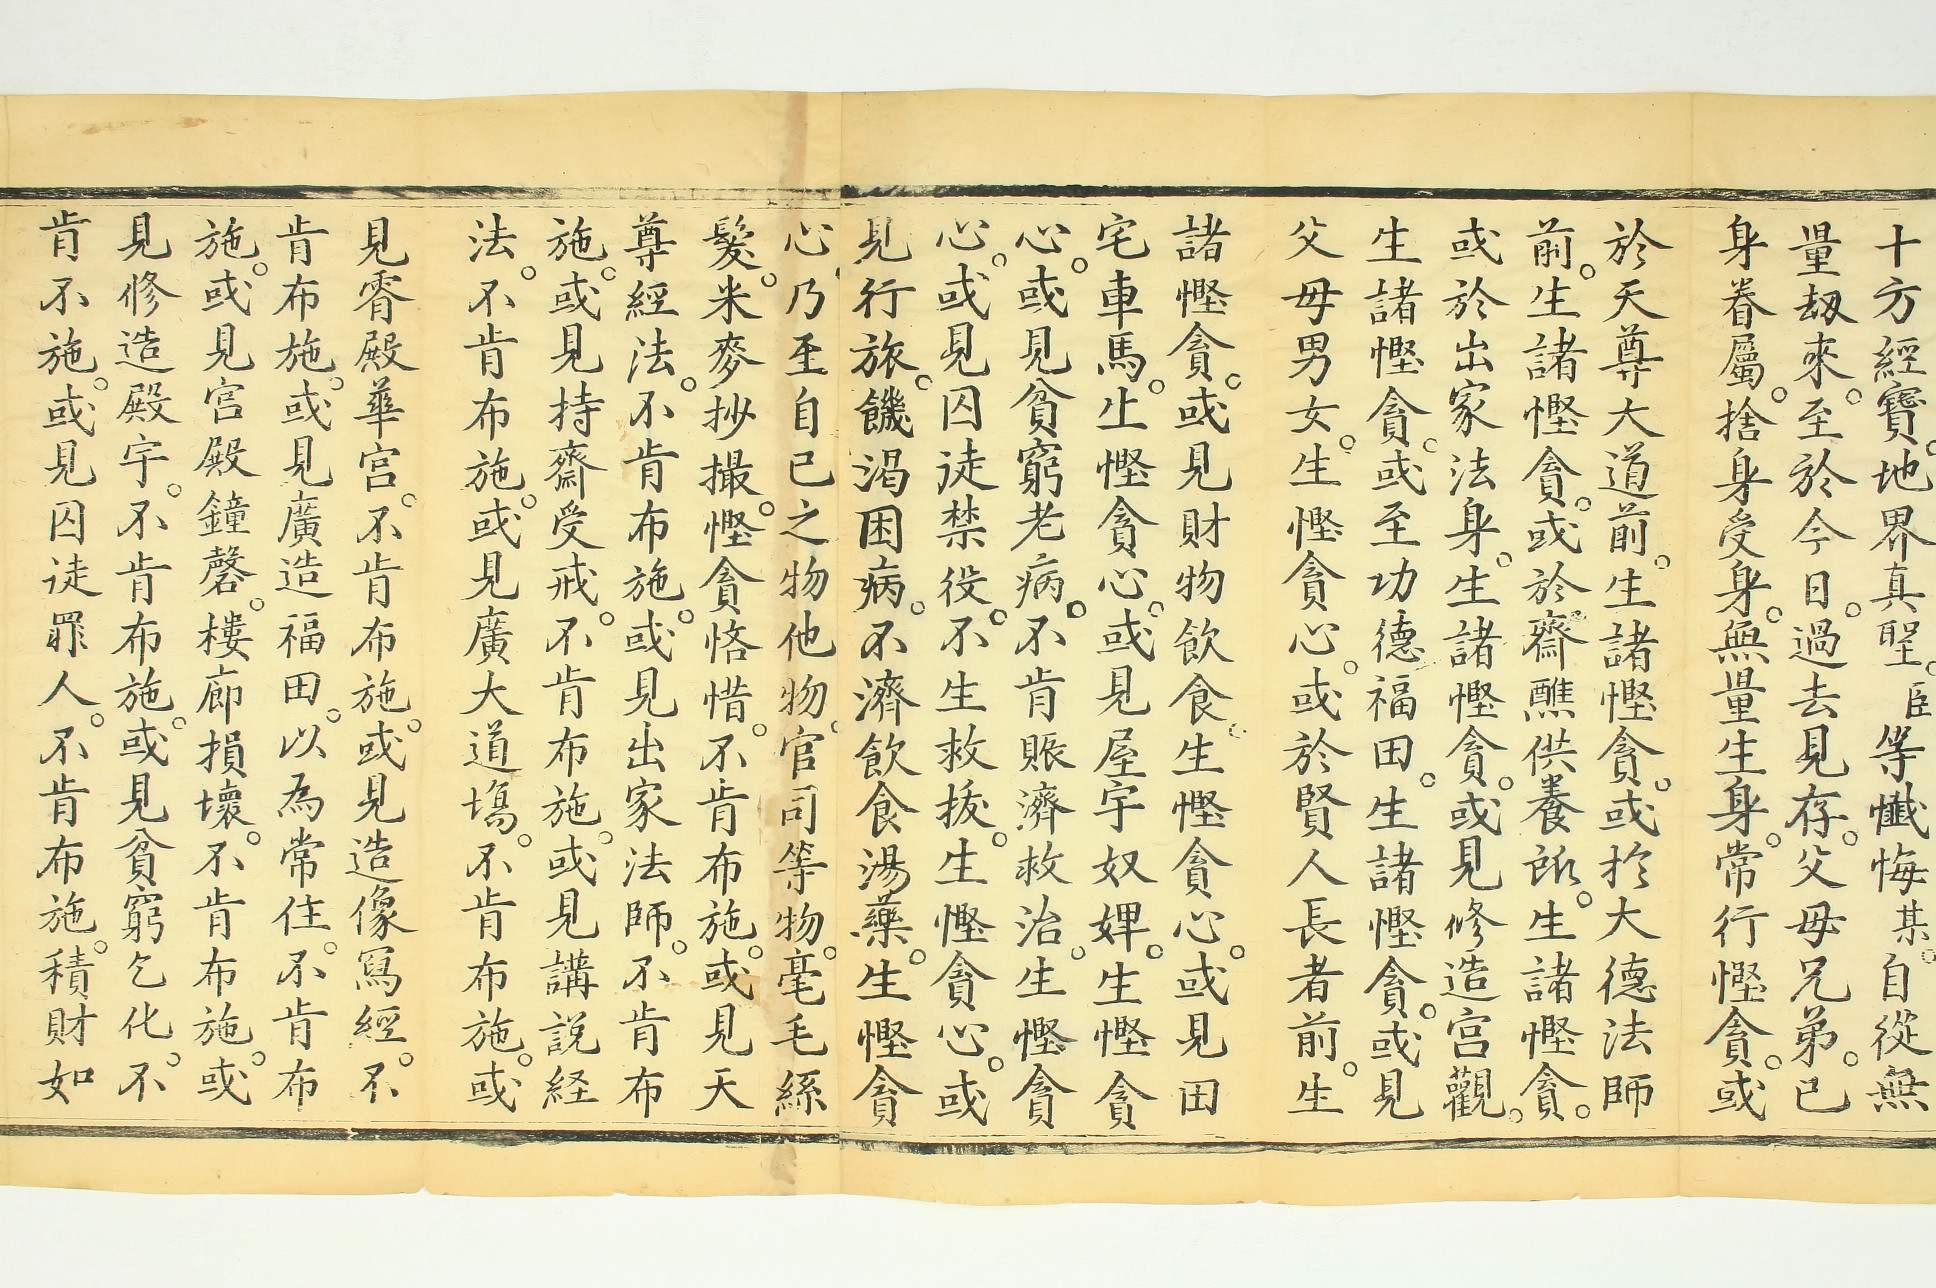 十方經寶。地界真聖。臣等懺悔某。自從無
量劫來。至於今日。過去見存。父母兄弟。已
身眷屬。捨身受身。無量生身。常行慳貪。或
於天尊大道前。生諸慳貪。或於大德法師
前。生諸慳貪。或於齋醮供養所。生諸慳貪。
或於出家法身。生諸慳貪。或見修造宮觀。
生諸慳貪。或至功德福田。生諸慳貪。或見
父母男女。生慳貪心。或於賢人長者前。生
諸慳貪。或見財物飲食。生慳貪心。或見田
宅車馬。生慳貪心。或見屋宇奴婢。生慳貪
心。或見貧窮老病。不肯賑濟救治。生慳貪
心。或見囚徒禁役。不生救拔。生慳貪心。或
見行旅。饑渴困病。不濟飲食湯藥。生慳貪
心。乃至自己之物他物。官司等物。毫毛絲
髮。米麥抄撮。慳貪恡惜。不肯布施。或見天
尊經法。不肯布施。或見出家法師。不肯布
施。或見持齋受戒。不肯布施。或見講説経
法。不肯布施。或見廣大道塲。不肯布施。或
見霄殿華宮。不肯布施。或見造像寫經。不
肯布施。或見廣造福田。以為常住。不肯布
施。或見宮殿鐘磬。樓廊損壞。不肯布施。或
見修造殿宇。不肯布施。或見貧窮乞化。不
肯不施。或見囚徒罪人。不肯布施。積財如